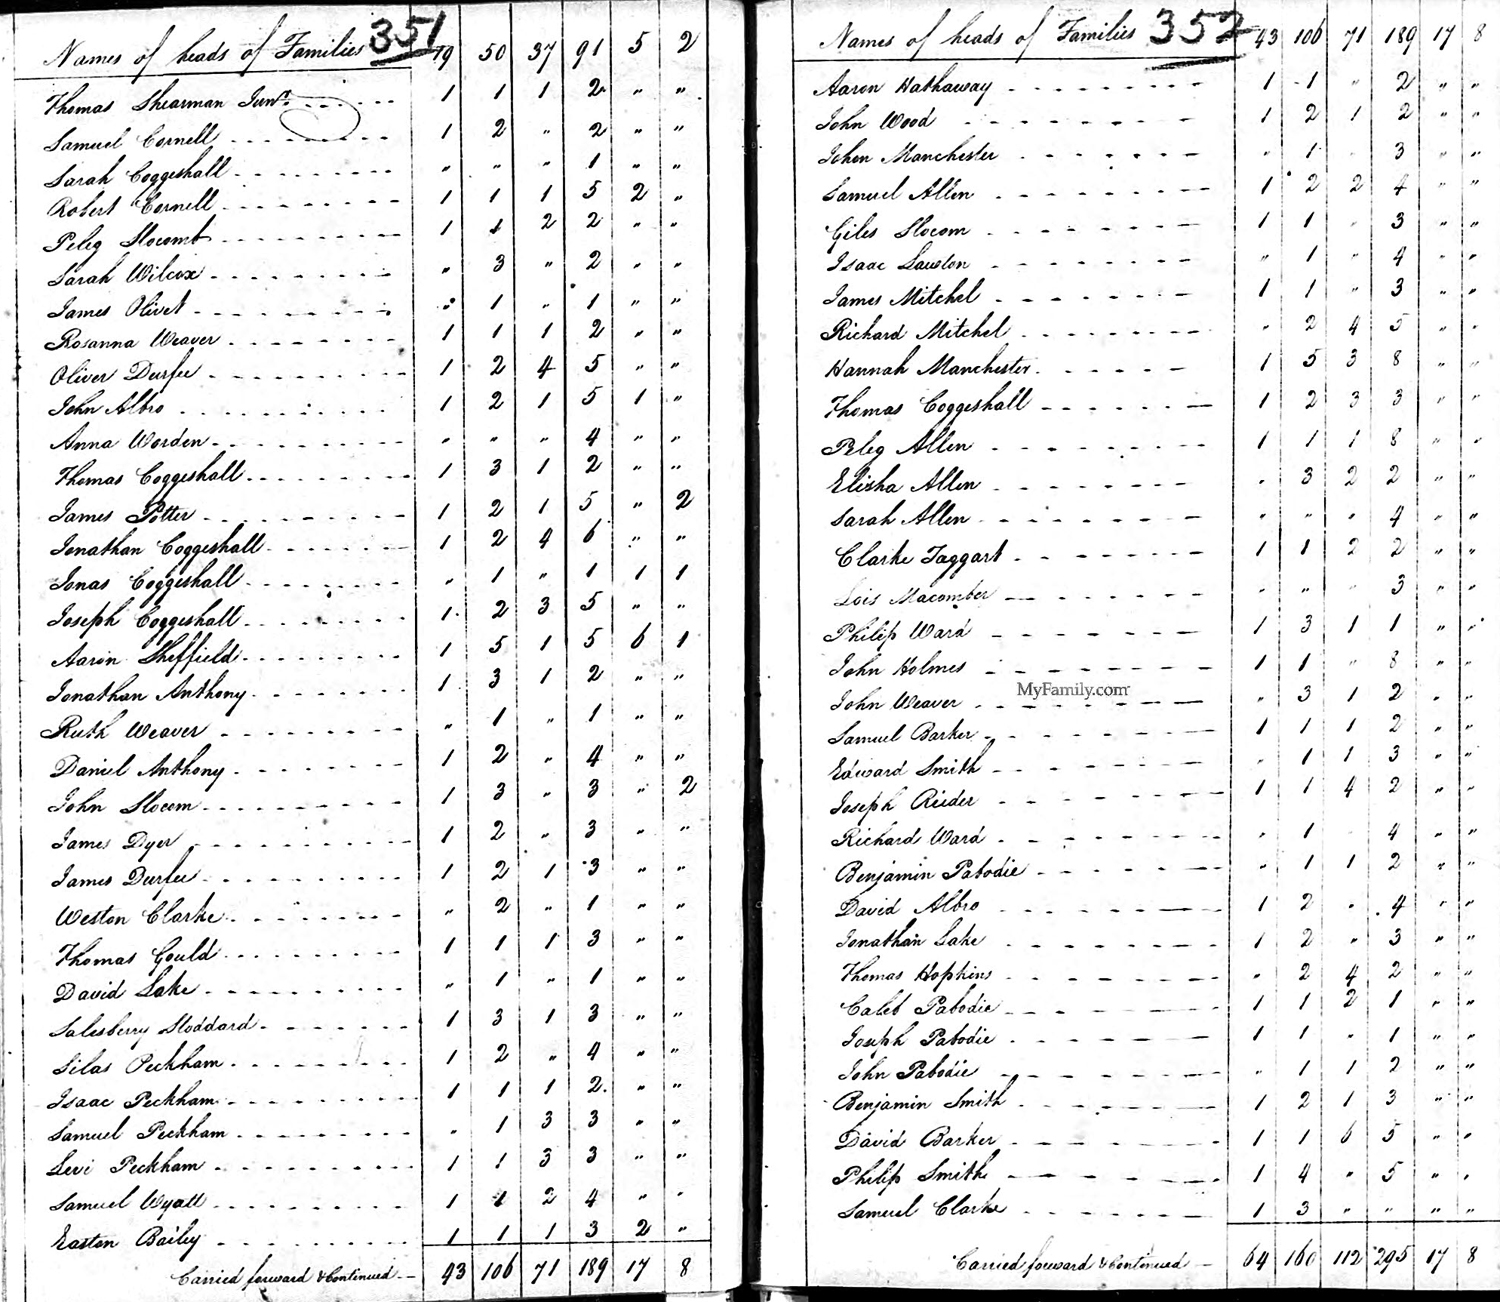 Names of heads of Families 351 19 50 37 91 5 2
Thomas Shearman Junr. 1 1 1 2 " "
Samuel Cornell 1 2 " 2 " "
Sarah Coggeshall " " " 1 " "
Robert Cornell 1 1 1 5 2 "
Peleg Slocomb 1 1 2 2 " "
Sarah Wilcox " 3 " 2 " "
James Olivet " 1 " 1 " "
Rosanna Weaver 1 1 1 2 " "
Oliver Durfee 1 2 4 5 " "
John Albro 1 2 1 5 1 "
Anna Worden " " " 4 " "
Thomas Coggeshall 1 3 1 2 " "
James Potter 1 2 1 5 " 2
Jonathan Coggeshall 1 2 4 6 " "
Jonas Coggeshall " 1 " 1 1 1
Joseph Coggeshall 1 2 3 5 " "
Aaron Sheffield 1 5 1 5 6 1
Jonathan Anthony 1 3 1 2 " "
Ruth Weaver " 1 " 1 " "
Daniel Anthony 1 2 " 4 " "
John Slocom 1 3 " 3 " 2
James Dyer 1 2 " 3 " "
James Durfee 1 2 1 3 " "
Weston Clarke " 2 " 1 " "
Thomas Gould 1 1 1 3 " "
David Lake " 1 " 1 " "
Salesberry Stoddard 1 3 1 3 " "
Silas Peckham 1 2 " 4 " "
Isaac Peckham 1 1 1 2 " "
Samuel Peckham " 1 3 3 " "
Levi Peckham 1 1 3 3 " "
Samuel Wyatt 1 1 2 4 " "
Easton Bailey 1 1 1 3 2 "
Carried forward & Continued 43 106 71 189 17 8
Names of heads of Families 352 43 106 71 189 17 8
Aaron Hathaway 1 1 " 2 " "
John Wood 1 2 1 2 " "
John Manchester " 1 " 3 " "
Samuel Allen 1 2 2 4 " "
Giles Slocom 1 1 " 3 " "
Isaac Lawton " 1 " 4 " "
James Mitchel 1 1 " 3 " "
Richard Mitchel " 2 4 5 " "
Hannah Manchester 1 5 3 8 " "
Thomas Coggeshall 1 2 3 3 " "
Peleg Allen 1 1 1 8 " "
Elisha Allen " 3 2 2 " "
Sarah Allen " " " 4 " "
Clarke Taggart 1 1 2 2 " "
Lois Macomber " " " 3 " "
Philip Ward 1 3 1 1 " "
John Holmes 1 1 " 8 " "
MyFamily.com
John Weaver " 3 1 2 " "
Samuel Barker 1 1 1 2 " "
Edward Smith " 1 1 3 " "
Joseph 1 1 4 2 " "
Richard Ward " 1 " 4 " "
Benjamin Pabodie " 1 1 2 " "
David Albro 1 2 " 4 " "
Jonathan Lake 1 2 " 3 " "
Thomas Hopkins " 2 4 2 " "
Caleb Pabodie 1 1 2 1 " "
Joseph Pabodie 1 1 " 1 " "
John Pabodie " 1 1 2 " "
Benjamin Smith 1 2 1 3 " "
David Barker 1 1 6 5 " "
Philip Smith 1 4 " 5 " "
Samuel Clarke 1 3 " " " "
Carried forward & Continued 64 160 112 295 17 8